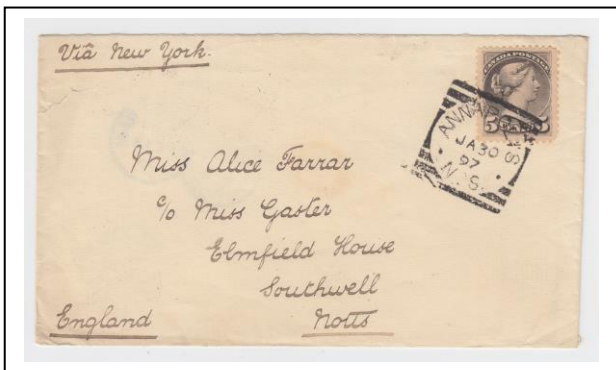 Viâ New York.
CANADA POSTAGE
ANNAPOLIS
JA 30
97
N.S.
Miss Alice Farrar
c/o Miss Gaster
Elmfield House
Southwell
England Notts